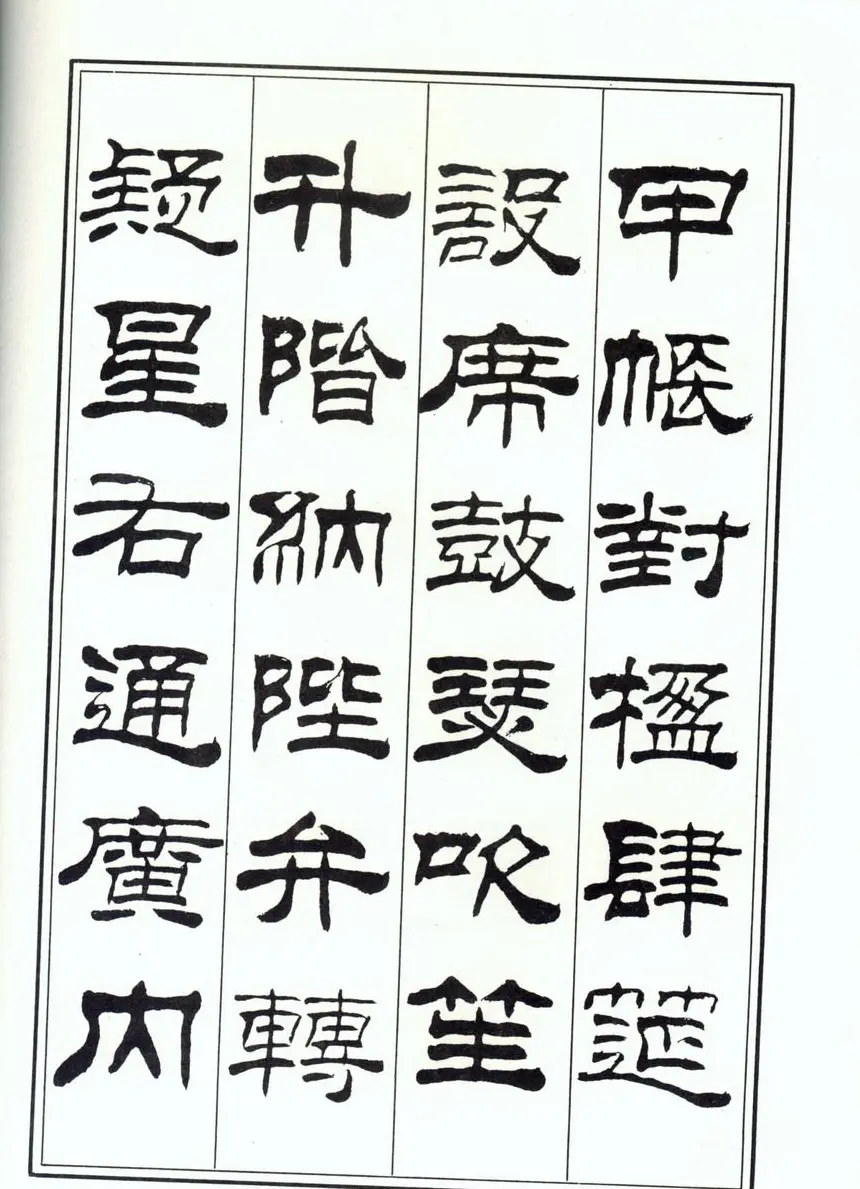 甲帳對楹肆筵
設席鼓瑟吹笙
升階納陛弁轉
疑星右通廣內